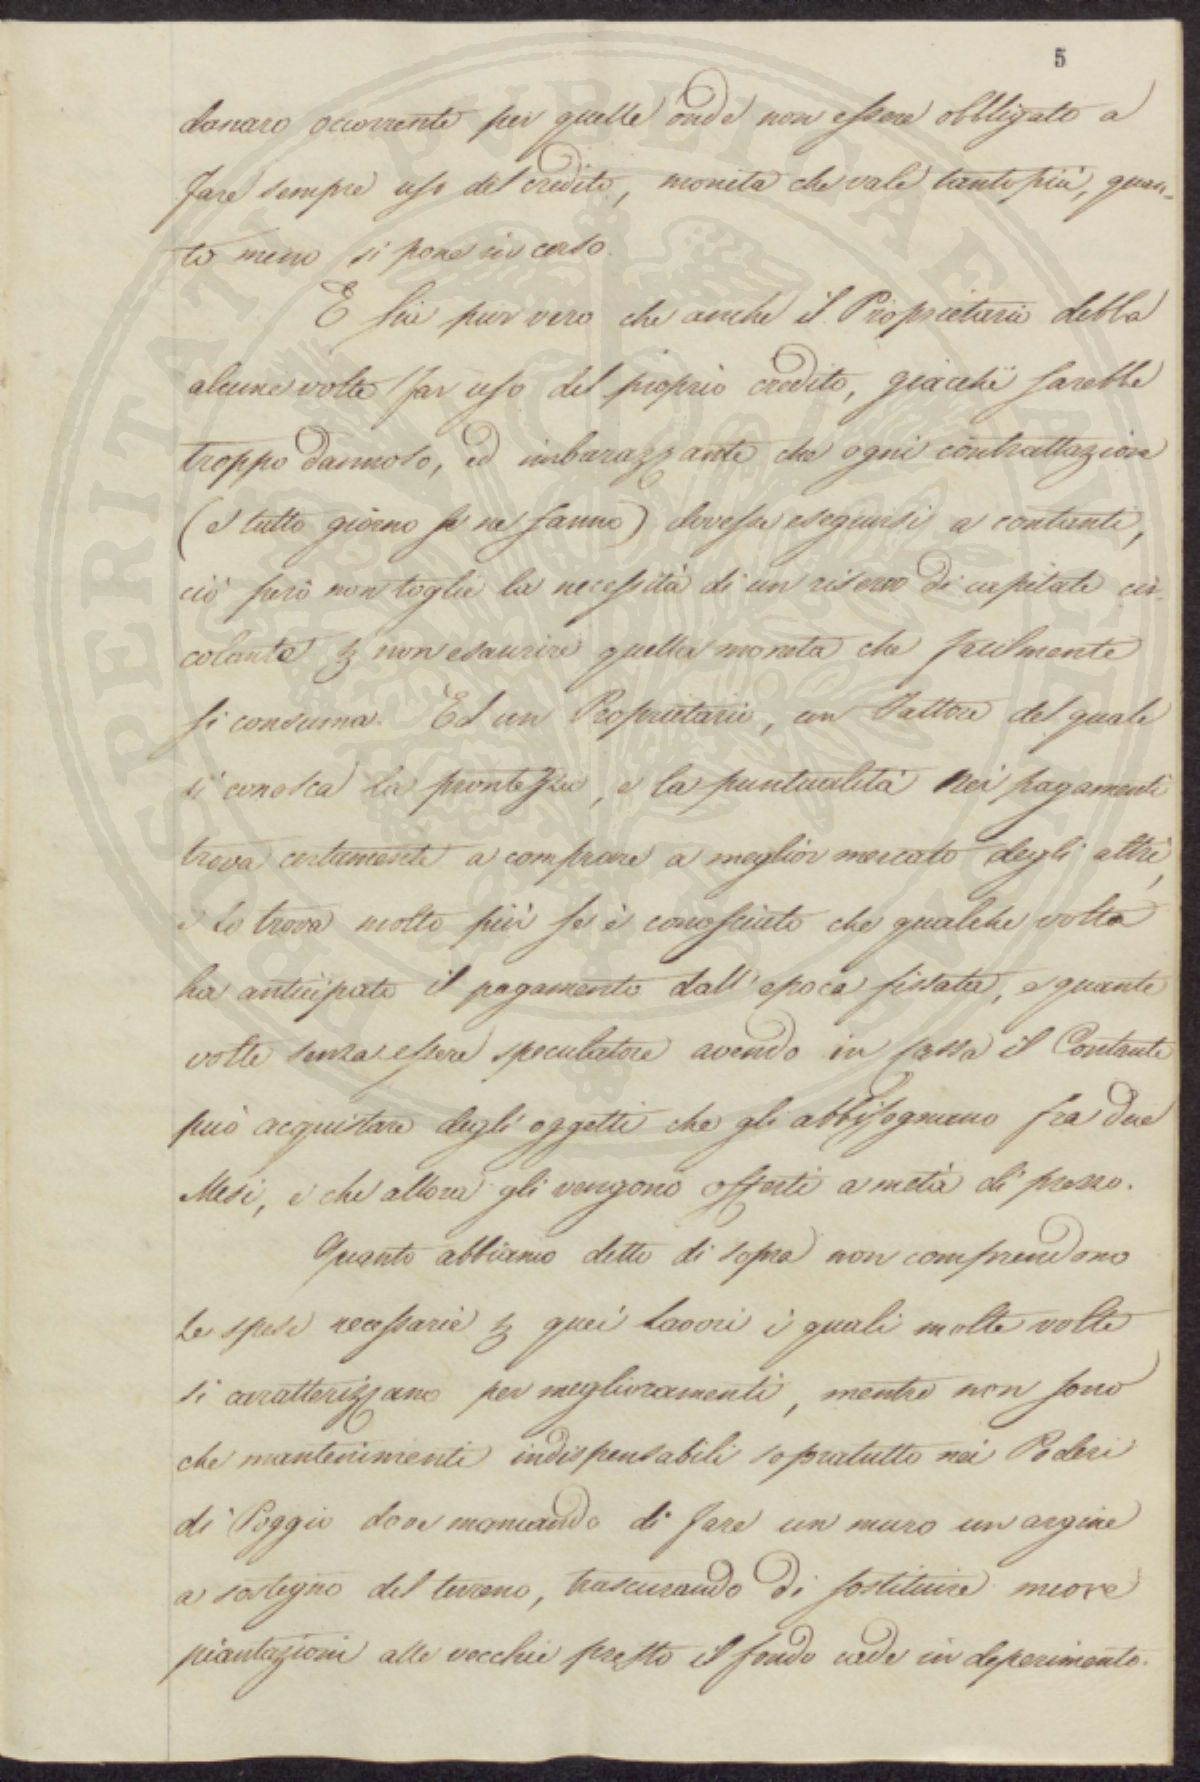 5
danaro occorrente per quelle onde non essere obbligato a
fare sempre uso del credito, moneta che vale tanto più, quan-
to meno si pone in corso.
E sia pur vero che anche il Proprietario debba
alcune volte far uso del proprio credito, giacchè sarebbe
troppo dannoso, ed imbarazzante che ogni contrattazione
(e tutto giorno se ne fanno) dovesse eseguirsi a contanti,
ciò però non toglie la necessità di un riservo di capitale cir-
colante p non esaurire quella moneta che facilmente
si consuma. Ed un Proprietario, un Fattore del quale
si conosca la prontezza, e la puntualità nei pagamenti
trova certamente a comprare a meglior mercato degli altri,
e lo trova molto più se è conosciuto che qualche volta
ha anticipato il pagamento dall'epoca fissata, e quante
volte senza essere speculatore avendo in Cassa il Contante
può acquistare degli oggetti che gli abbisognano fra due
Mesi, e che allora gli vengono offerti a metà di prezzo.
Quanto abbiamo detto di sopra non comprendono
le spese necessarie p quei lavori i quali molte volte
si caratterizzano per miglioramenti, mentre non sono
che mantenimenti indispensabili sopratutto nei Poderi
di Poggio dove mancando di fare un muro un argine
a sostegno del terreno, trascurando di sostituire nuove
piantazioni alle vecchie presto il fondo cade in deperimento.
PROSPERITATI PUBLICAE AUGENDAE